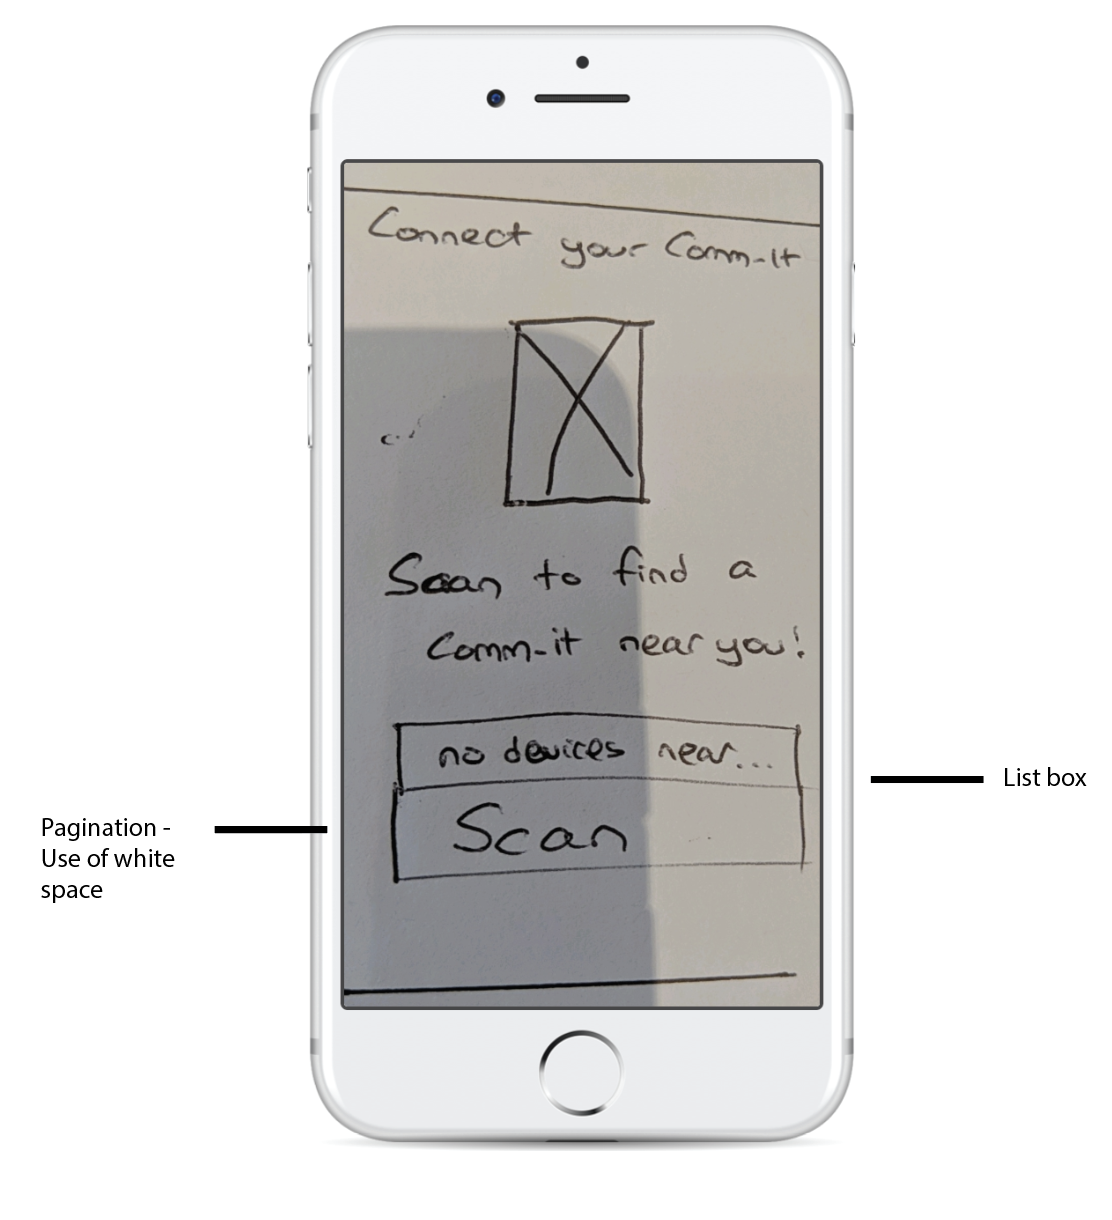 Connect your Comm-it
Scan to find a
Comm-it near you!
no devices near...
Scan
List box
Pagination -
Use of white
space